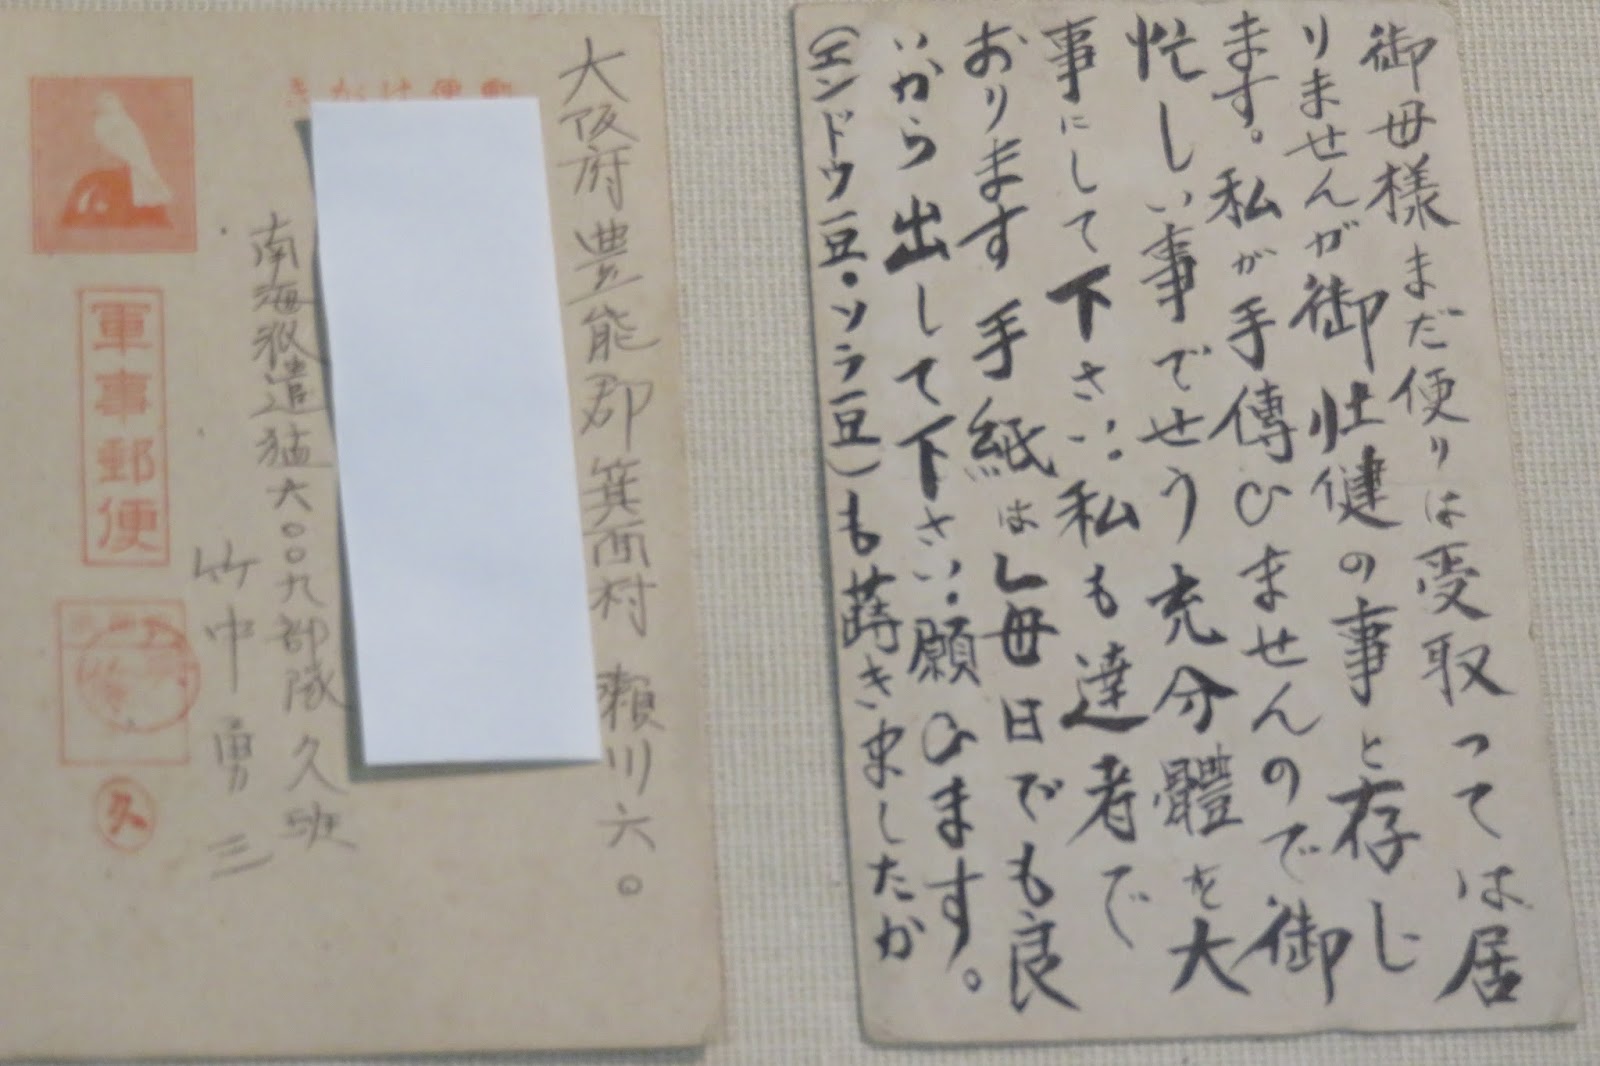 大阪府豊能郡箕面村瀬川六〇
南海派遣猛六〇〇九部隊久班
竹中勇三
軍事郵便
久
御母様まだ便りは受取っては居
りませんが御壮健の事と存じ
ます。私が手傳ひませんので御
忙しい事でせう充分體を大
事にして下さい。私も達者で
おります手紙は母日でも良
いから出して下さい。願ひます。
(エンドウ豆・ソラ豆)も蒔きましたか